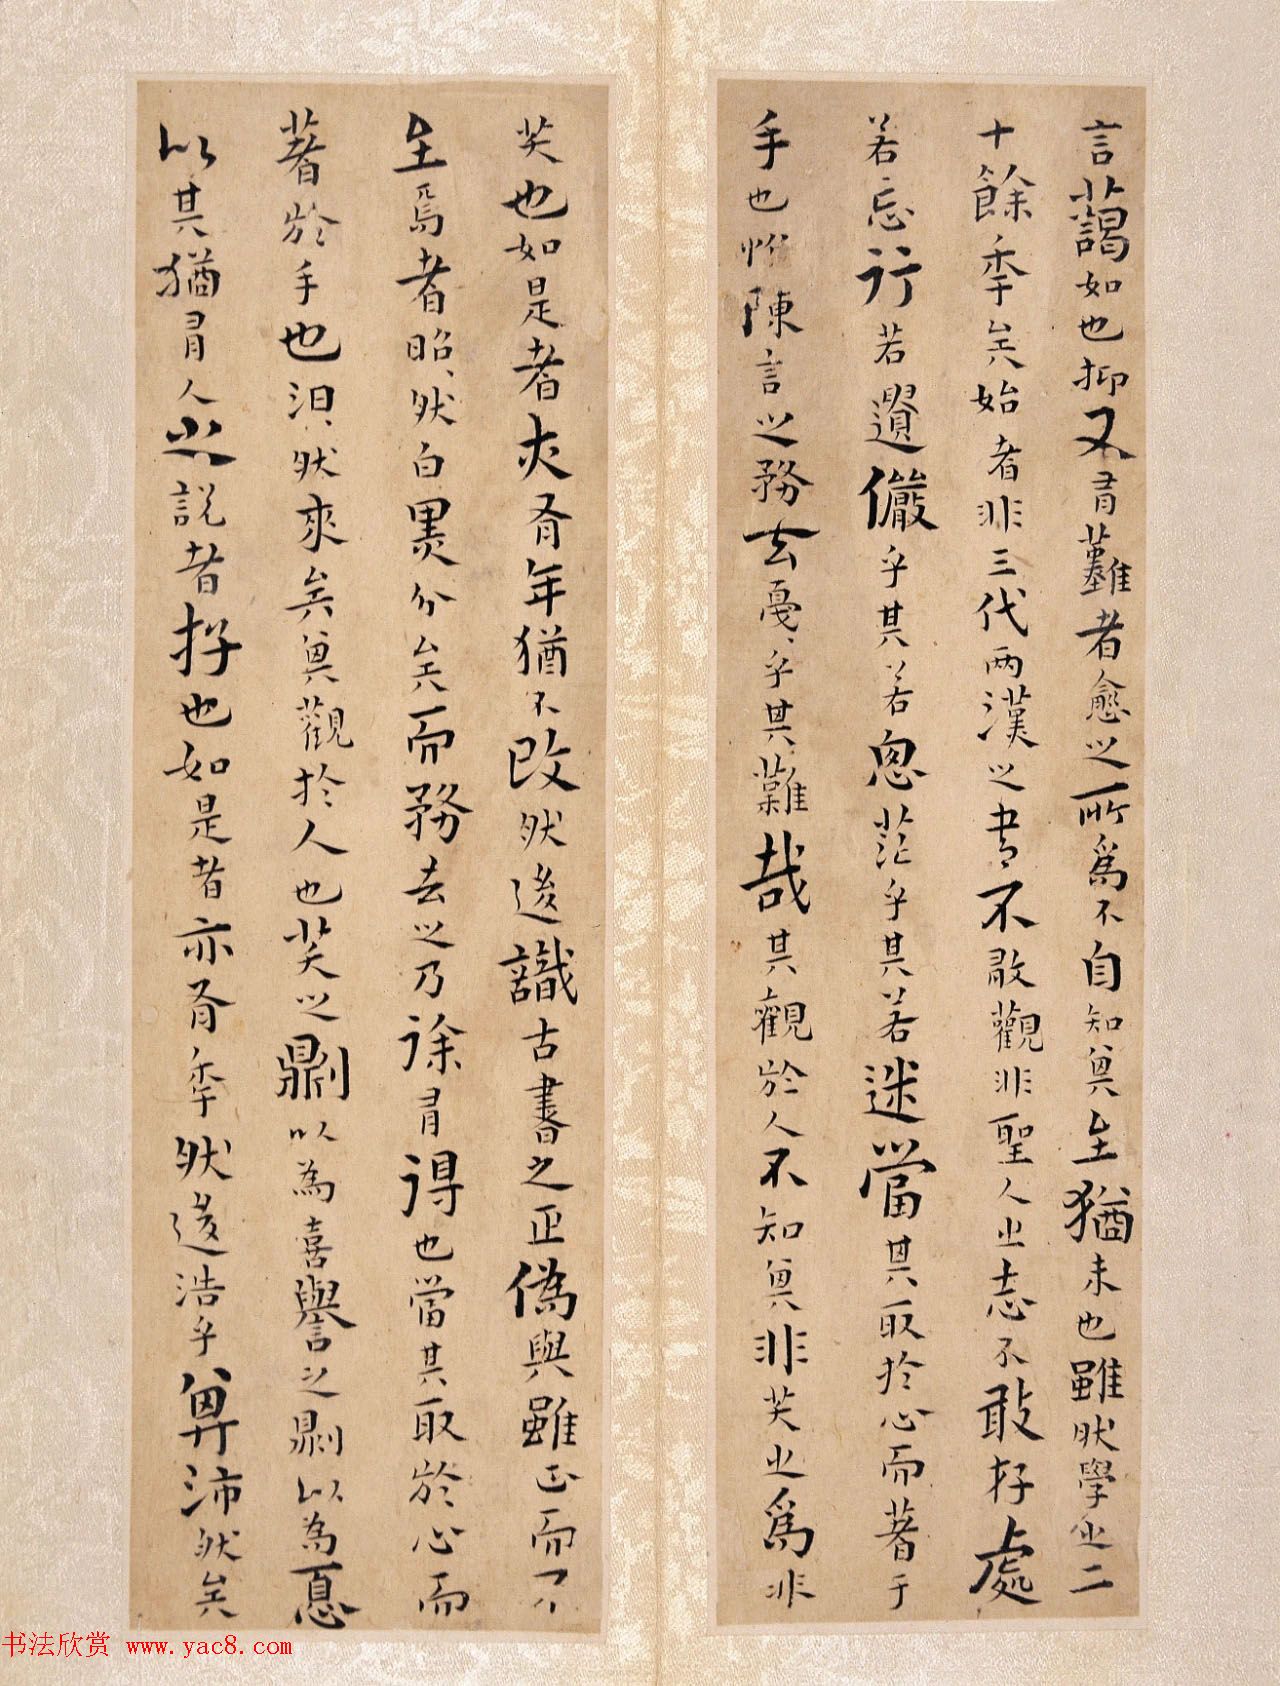 言藹如也抑又有難者愈之所爲不自知其至猶未也雖然學之二
十餘年矣始者非三代兩漢之書不敢觀非聖人之志不敢存處
若忘行若遺儼乎其若思茫乎其若迷當其取於心而著于
手也惟陳言之務去戛戛乎其難哉其觀於人不知其非笑之爲非
笑也如是者亦有年猶不改然後識古書之正偽與雖正而不
至焉者昭昭然白黑分矣而務去之乃徐有得也當其取於心而
著於手也汩汩然來矣其觀於人也笑之則以為喜譽之則以為憂
以其猶有人之說者存也如是者亦有年然後浩乎其沛然矣
书法欣赏 www.yac8.com